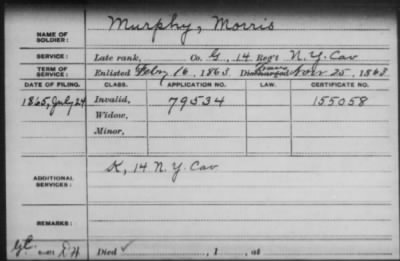 NAME OF SOLDIER: Murphy, Morris
SERVICE: Late rank, Co. G, 14 Reg't N.Y. Cav
TERM OF SERVICE: Enlisted Feby 16, 1863. Discharged Nov 25, 1863.
DATE OF FILING. CLASS. APPLICATION NO. LAW. CERTIFICATE NO.
1865, July 24 Invalid, 79534 155058
Widow,
Minor,
ADDITIONAL SERVICES: K, 14 N.Y. Cav
REMARKS:
Died , 1 , at